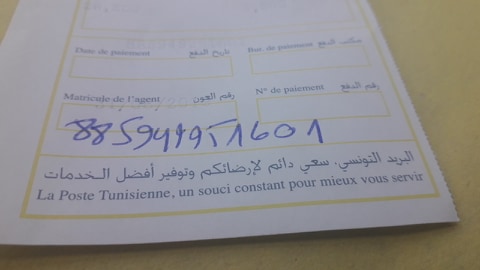 Date de paiement تاريخ الدفع
Bur. de paiement مكتب الدفع
Matricule de l'agent رقم العون
N° de paiement رقم الدفع
البريد التونسي، سعي دائم لإرضائكم وتوفير أفضل الخدمات
La Poste Tunisienne, un souci constant pour mieux vous servir